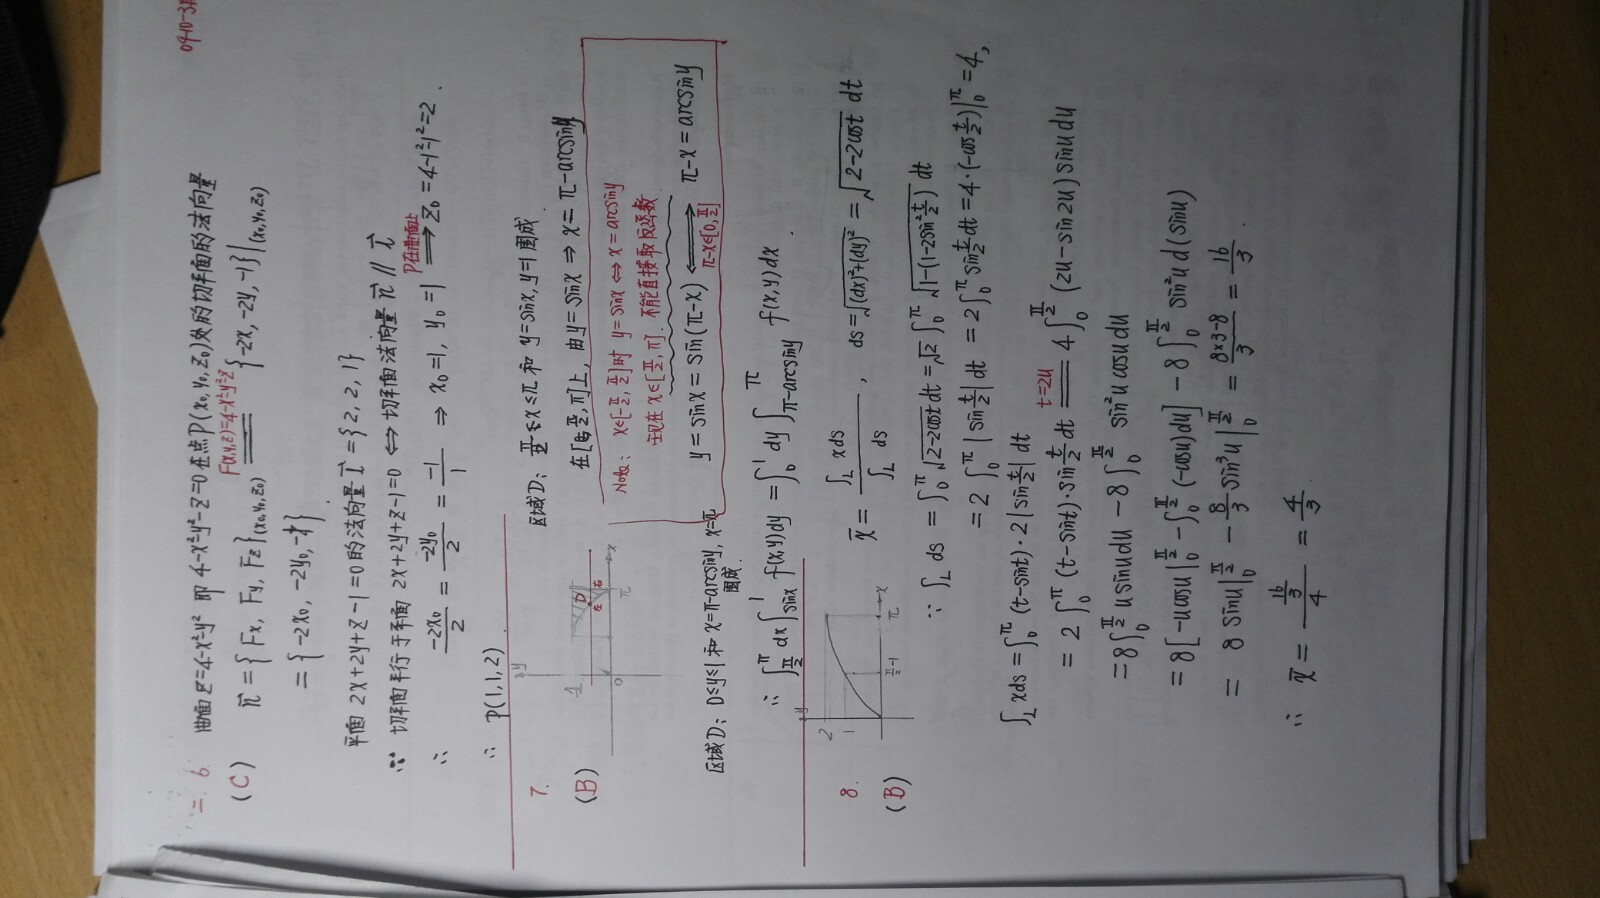 09-10-3
二. 6. 曲面 z=4-x²-y² 即 4-x²-y²-z=0 在点P(x₀, y₀, z₀)处的切平面的法向量
(C) n⃗ = {Fx, Fy, Fz}|(x₀,y₀,z₀) F(x,y,z)=4-x²-y²-z ═══ {-2x, -2y, -1}|(x₀,y₀,z₀)
= {-2x₀, -2y₀, -1}
平面 2x+2y+z-1=0 的法向量 l⃗ = {2, 2, 1}
∵ 切平面平行于平面 2x+2y+z-1=0 ⇔ 切平面法向量 n⃗ // l⃗
∴ -2x₀/2 = -2y₀/2 = -1/1 ⇒ x₀=1, y₀=1 P在曲面上 ⟹ z₀=4-1²-1²=2.
∴ P(1,1,2)
7. 区域D: π/2≤x≤π 和 y=sinx, y=1 围成.
(B) 在[π/2, π]上, 由 y=sinx ⇒ x=π-arcsiny
y 1 D 左 右 0 π x
Note: x∈[-π/2, π/2]时 y=sinx ⇔ x=arcsiny
现在 x∈[π/2, π]. 不能直接取反函数
y=sinx=sin(π-x) ⟺ π-x∈[0,π/2] π-x=arcsiny
区域D: 0≤y≤1 和 x=π-arcsiny, x=π 围成.
∴ ∫_{π/2}^{π} dx ∫_{sinx}^{1} f(x,y)dy = ∫_0^1 dy ∫_{π-arcsiny}^{π} f(x,y)dx.
8. x̄ = ∫_L xds / ∫_L ds, ds=√((dx)²+(dy)²) = √(2-2cost) dt
(B) y 2 1 π/2-1 π x
∵ ∫_L ds = ∫_0^π √(2-2cost) dt = √2 ∫_0^π √(1-(1-2sin² t/2)) dt
= 2∫_0^π |sin t/2| dt = 2∫_0^π sin t/2 dt = 4·(-cos t/2)|_0^π = 4,
∫_L xds = ∫_0^π (t-sint)·2|sin t/2| dt
= 2∫_0^π (t-sint)·sin t/2 dt t=2u ═══ 4∫_0^{π/2} (2u-sin2u)sinudu
= 8∫_0^{π/2} usinudu - 8∫_0^{π/2} sin²ucosudu
= 8[-ucosu|_0^{π/2} - ∫_0^{π/2} (-cosu)du] - 8∫_0^{π/2} sin²ud(sinu)
= 8 sinu|_0^{π/2} - 8/3 sin³u|_0^{π/2} = (8×3-8)/3 = 16/3.
∴ x̄ = (16/3)/4 = 4/3